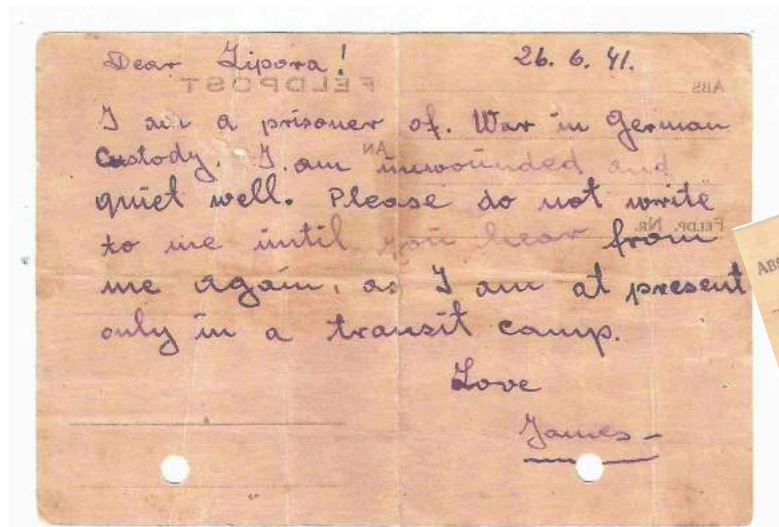 Dear Zipora! 26. 6. 41.
FELDPOST
ABS
I am a prisoner of. War in German
AN
Custody. I am unwounded and
quiet well. Please do not write
FELDP. NR.
to me until you hear from
me again, as I am at present
only in a transit camp.
Love
James -
ABS